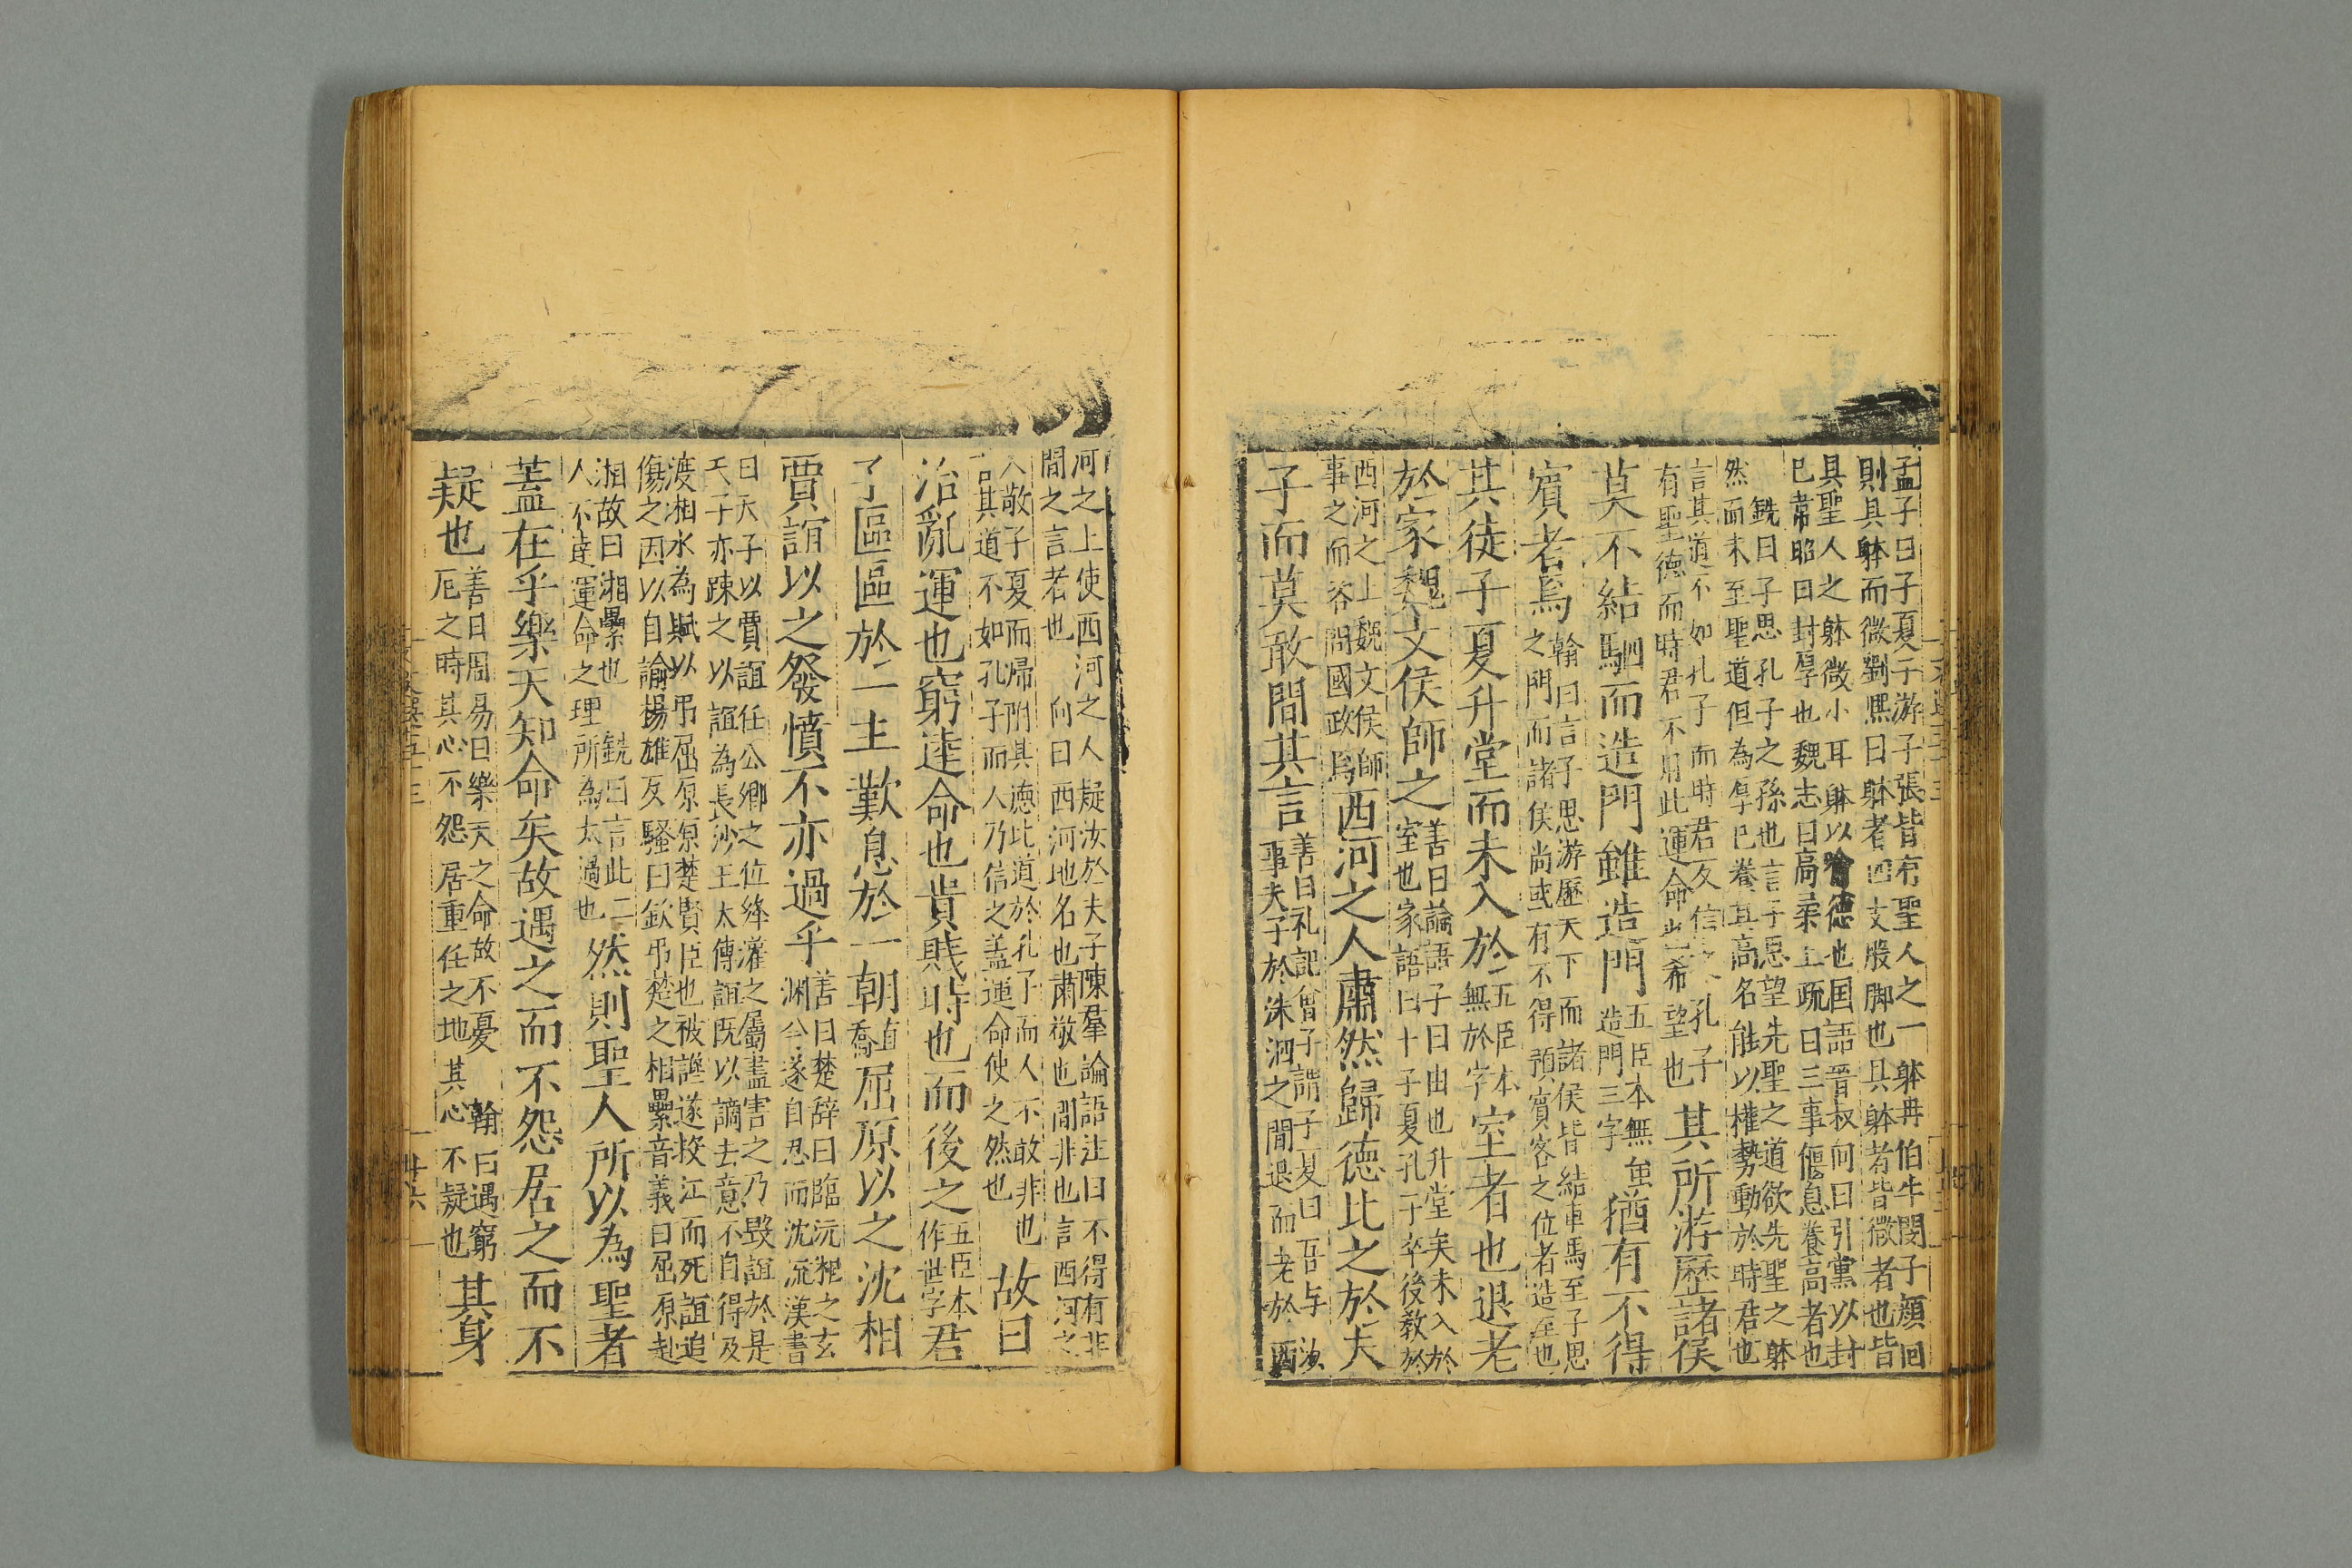 孟子曰子夏子游子張皆有聖人之一躰冉伯牛閔子顔回
則具躰而微劉熈曰躰者四支股脚也具躰者皆微者也皆
具聖人之躰微小耳躰以喻德也国語晋叔向曰引黨以封
己韋昭曰封厚也魏志曰高柔上疏曰三事偃息養高者也
銑曰子思孔子之孫也言子思望先聖之道欲先聖之躰
然而未至聖道但為厚己養其高名能以權勢動於時君也
言其道不如孔子而時君反信之孔子
有聖德而時君不用此運命也希望也
其所游歷諸侯
莫不結駟而造門雖造門
五臣本無虽
造門三字
猶有不得
賓者焉
翰曰言子思游歷天下而諸侯皆結車馬至子思
之門而諸侯尚或有不得預賓客之位者造至也
其徒子夏升堂而未入於
五臣本
無於字
室者也退老
於家魏文侯師之
善曰論語子曰由也升堂矣未入於
室也家語曰卜子夏孔子卒後教於
西河之上魏文侯師
事之而咨問國政焉
西河之人肅然歸德比之於夫
子而莫敢間其言
善曰礼記曾子謂子夏曰吾与汝
事夫子於洙泗之間退而老於西
河之上使西河之人疑汝於夫子陳羣論語注曰不得有非
間之言者也 向曰西河地名也肅敬也間非也言西河之
人敬子夏而帰附其德比道於孔子而人不敢非也
言其道不如孔子而人乃信之盖運命使之然也
故曰
治亂運也窮逹命也貴賤時也而後之
五臣本
作世字
君
子區區於一主歎息於一朝
屈原以之沈相
賈誼以之發憤不亦過乎
善曰楚辞曰臨沅湘之玄
渊兮遂自忍而沈流漢書
曰天子以賈誼任公卿之位絳灌之屬盡害之乃毀誼於是
天子亦踈之以誼為長沙王太傅誼既以謫去意不自得及
渡湘水為賦以弔屈原原楚賢臣也被讒遂投江而死誼追
傷之因以自諭揚雄反騷曰欽弔楚之相纍音義曰屈原赴
湘故曰湘纍也 銑曰言此二
人不逹運命之理所為太過也
然則聖人所以為聖者
蓋在乎樂天知命矣故遇之而不怨居之而不
疑也
善曰周易曰樂天之命故不憂 翰曰遇窮
厄之時其心不怨居重任之地其心不疑也
其身